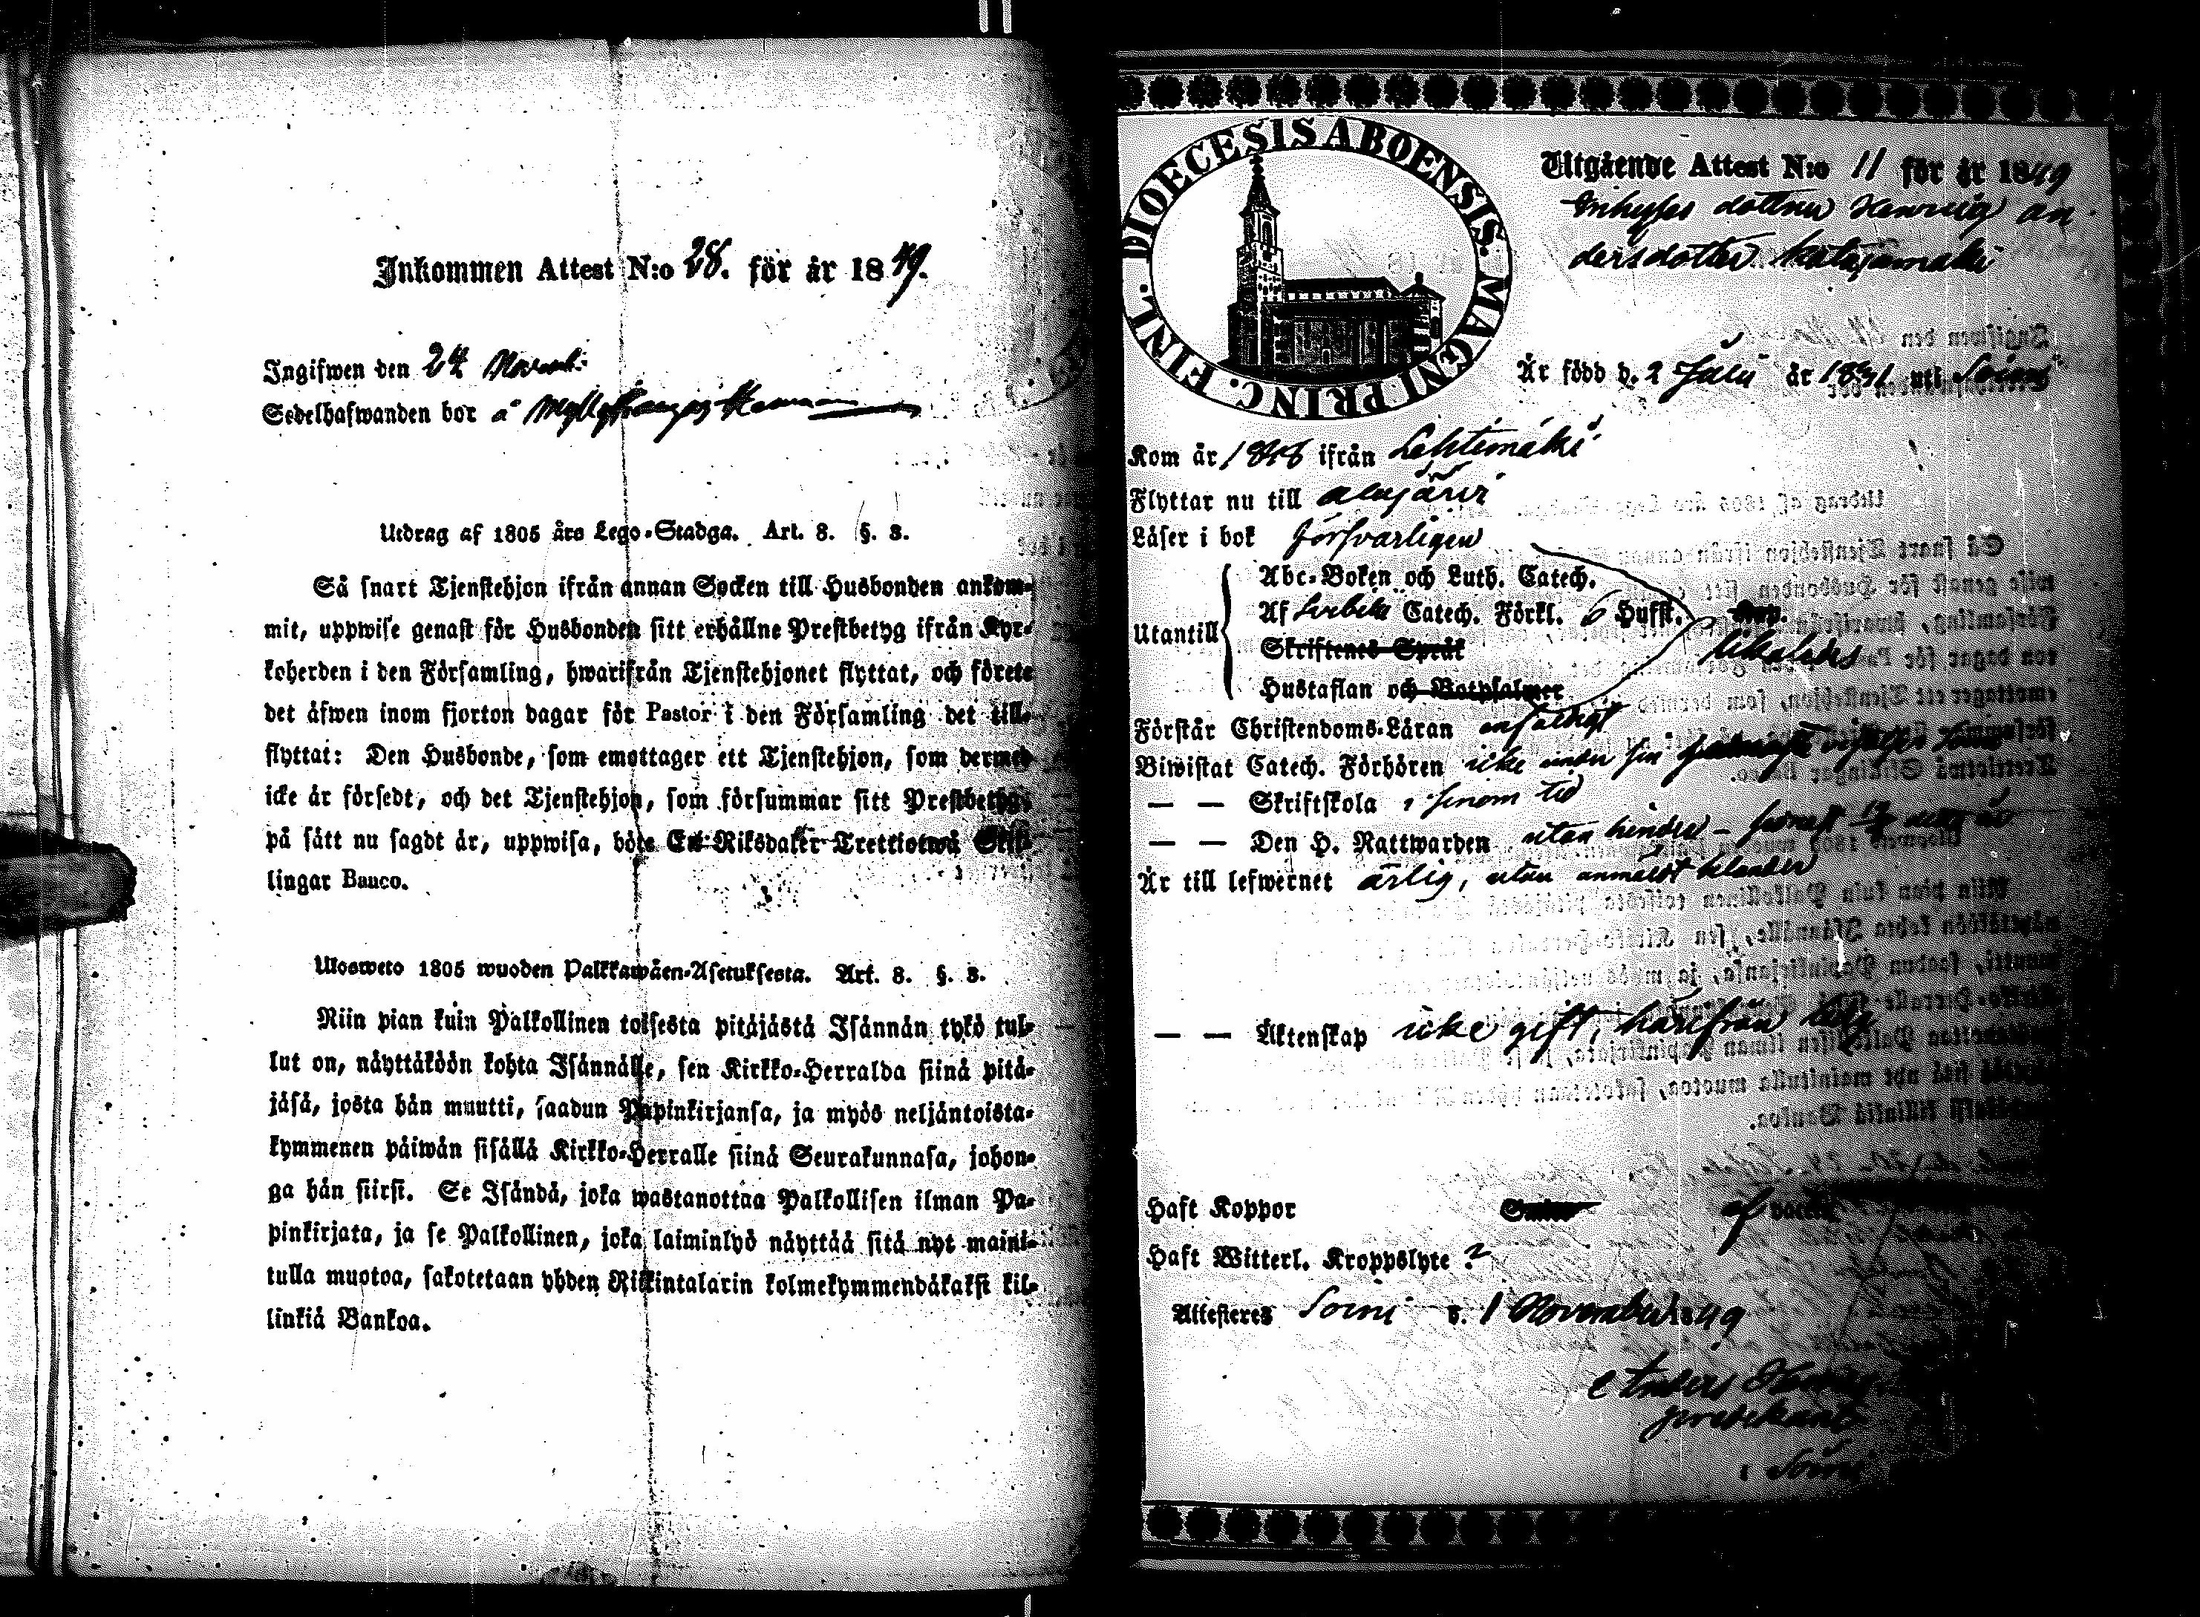 Inkommen Attest N:o 28. för år 1849.
Ingifwen den 24 Novemb:
Sedelhafwanden bor å
Utdrag af 1805 års Lego-Stadga. Art. 8. §. 3.
Så snart Tjenstehjon ifrån annan Socken till Husbonden ankom-
mit, uppwise genast för Husbonden sitt erhållne Prestbetyg ifrån Kyr-
koherden i den Församling, hwarifrån Tjenstehjonet flyttat, och förete
det äfwen inom fjorton dagar för Pastor i den Församling det till-
flyttat: Den Husbonde, som emottager ett Tjenstehjon, som dermed
icke är försedt, och det Tjenstehjon, som försummar sitt Prestbetyg,
på sätt nu sagdt är, uppwisa, böte Ett Riksdaler Trettiotwå Skil-
lingar Banco.
Ulosweto 1805 wuoden Palkkawäen-Asetuksesta. Art. 8. §. 3.
Niin pian kuin Palkollinen toisesta pitäjästä Isännän tykö tul-
lut on, näyttäköön kohta Isännälle, sen Kirkko-Herralda siinä pitä-
jäsä, josta hän muutti, saadun Papinkirjansa, ja myös neljäntoista-
kymmenen päiwän sisällä Kirkko-Herralle siinä Seurakunnasa, johon-
ga hän siirsi. Se Isändä, joka wastanottaa Palkollisen ilman Pa-
pinkirjata, ja se Palkollinen, joka laiminlyö näyttää sitä nyt maini-
tulla muotoa, sakotetaan yhden Riikintalarin kolmekymmendäkaksi kil-
linkiä Bankoa.
DIOECESIS ABOENSIS. MAGNI PRINC. FINL.
Utgående Attest N:o 11 för år 1849
Inhyses dottren Henrica An
dersdotter Katajamäki
Är född d. 2 Julii år 1831 uti Soini
Kom år 1848 ifrån Lehtimäki
Flyttar nu till Alajärvi
Läser i bok försvarligen
Utantill
Abc-Boken och Luth. Catech.
Af Svebilii Catech. Förkl. 6 Hufst.
likaledes
Skriftenes Språk
Hustaflan och Botpsalmer
Förstår Christendoms-Läran enfaldigt
Biwistat Catech. Förhören icke under sin
— — Skriftskola i sinom tid
— — Den H. Nattwarden utan hinder - senast
Är till lefwernet ärlig, utan anmäldt klander
— — Äktenskap icke gift, härifrån ledig
Haft Koppor
Haft Witterl. Kroppslyte ?
Attesteres Soini d. 1 November 1849
Anders
predikant
i Soini